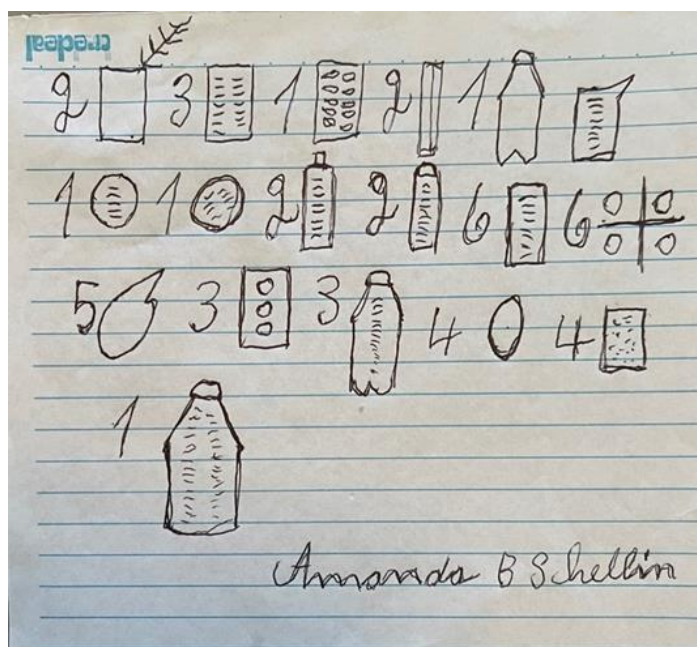 credeal
2 3 1 2 1
1 1 2 2 6 6
5 3 3 4 4
1
Amanda B Schellin